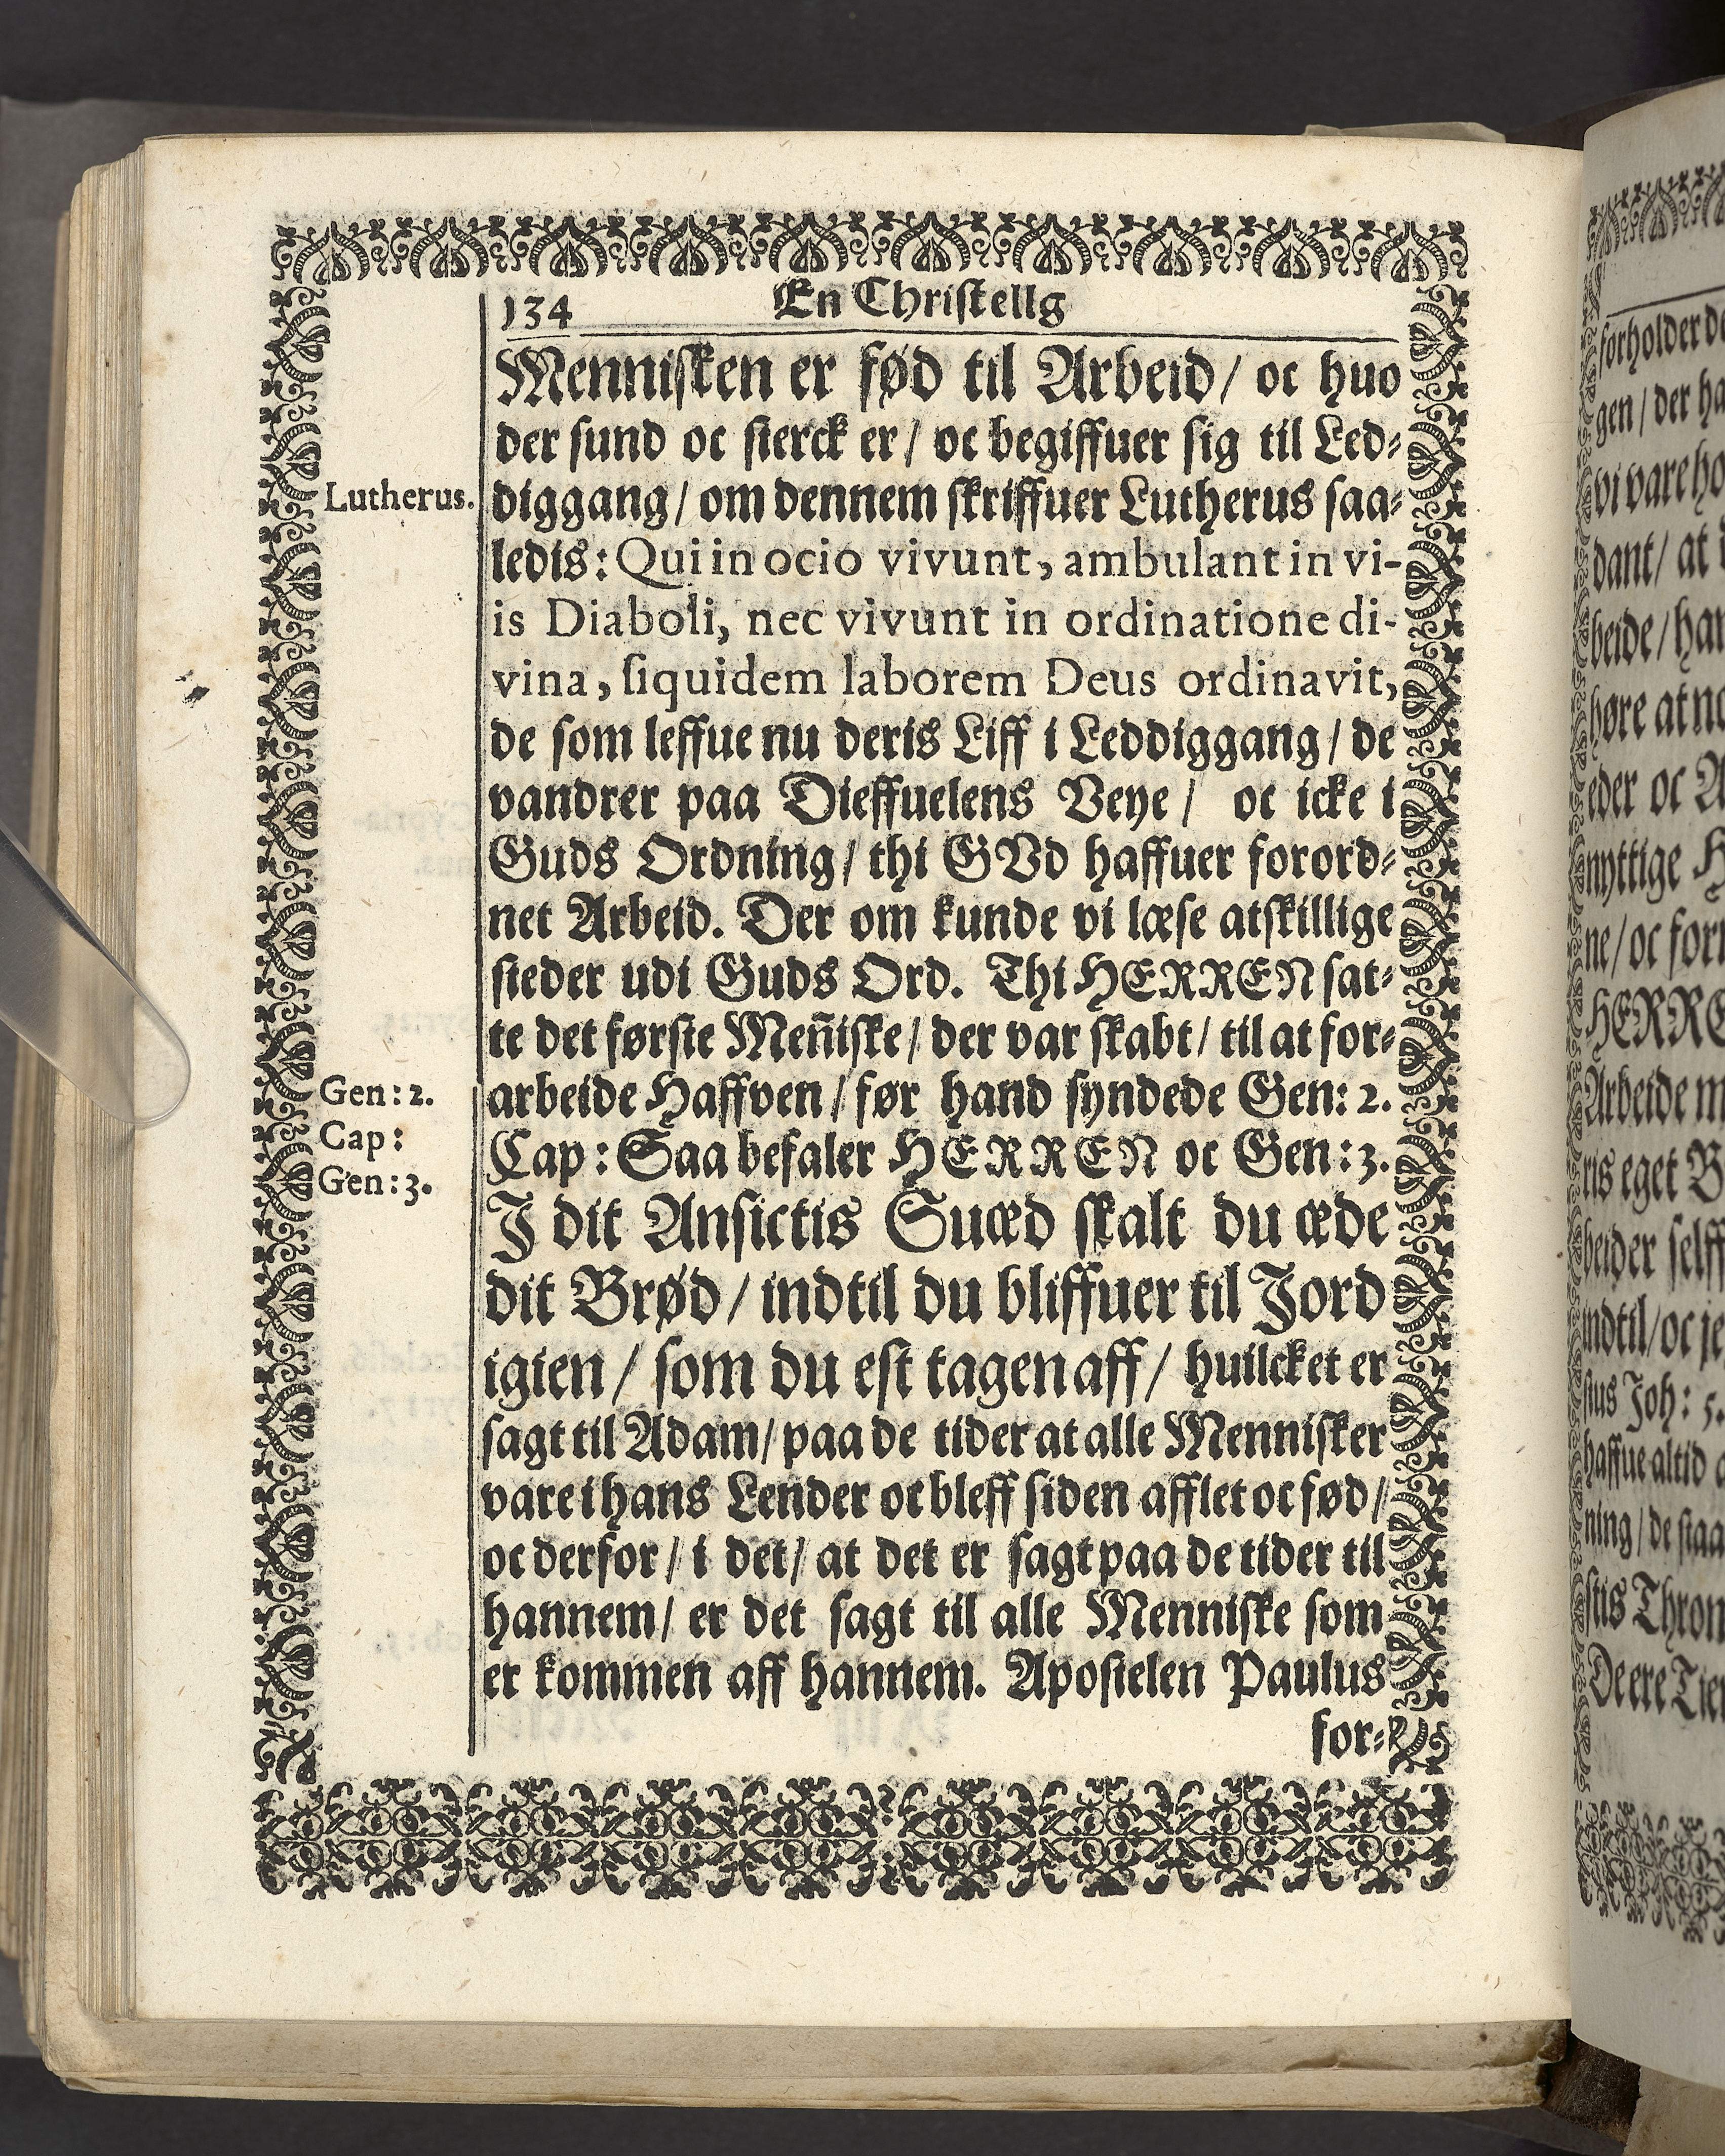 134 En Christellg
Mennisken er fød til Arbeid/ oc huo
der sund oc sterck er/ oc begiffuer sig til Led-
Lutherus.
diggang/ om dennem skriffuer Lutherus saa-
ledis: Qui in ocio vivunt, ambulant in vi-
is Diaboli, nec vivunt in ordinatione di-
vina, siquidem laborem Deus ordinavit,
de som leffue nu deris Liff i Leddiggang/ de
vandrer paa Dieffuelens Veye/ oc icke i
Guds Ordning/ thi GVd haffuer forord-
net Arbeid. Der om kunde vi læse atskillige
steder udi Guds Ord. Thi HERREN sat-
te det første Meñiske/ der var skabt/ til at for-
Gen: 2.
Cap:
Gen: 3.
arbeide Haffven/ før hand syndede Gen: 2.
Cap: Saa befaler HERREN oc Gen: 3.
I dit Ansictis Suæd skalt du æde
dit Brød/ indtil du bliffuer til Jord
igien/ som du est tagen aff/ huilcket er
sagt til Adam/ paa de tider at alle Mennisker
vare i hans Lender oc bleff siden afflet oc fød/
oc derfor/ i det/ at det er sagt paa de tider til
hannem/ er det sagt til alle Menniske som
er kommen aff hannem. Apostelen Paulus
for-
forholder
gen/ der
vi vare
dant/ at
beide/
høre at
eder oc
nyttige
ne/ oc
HERRE
Arbeide
ris eget
beider selff
indtil/ oc
stus Joh: 5.
haffue altid
ning/ de
stis
De ere